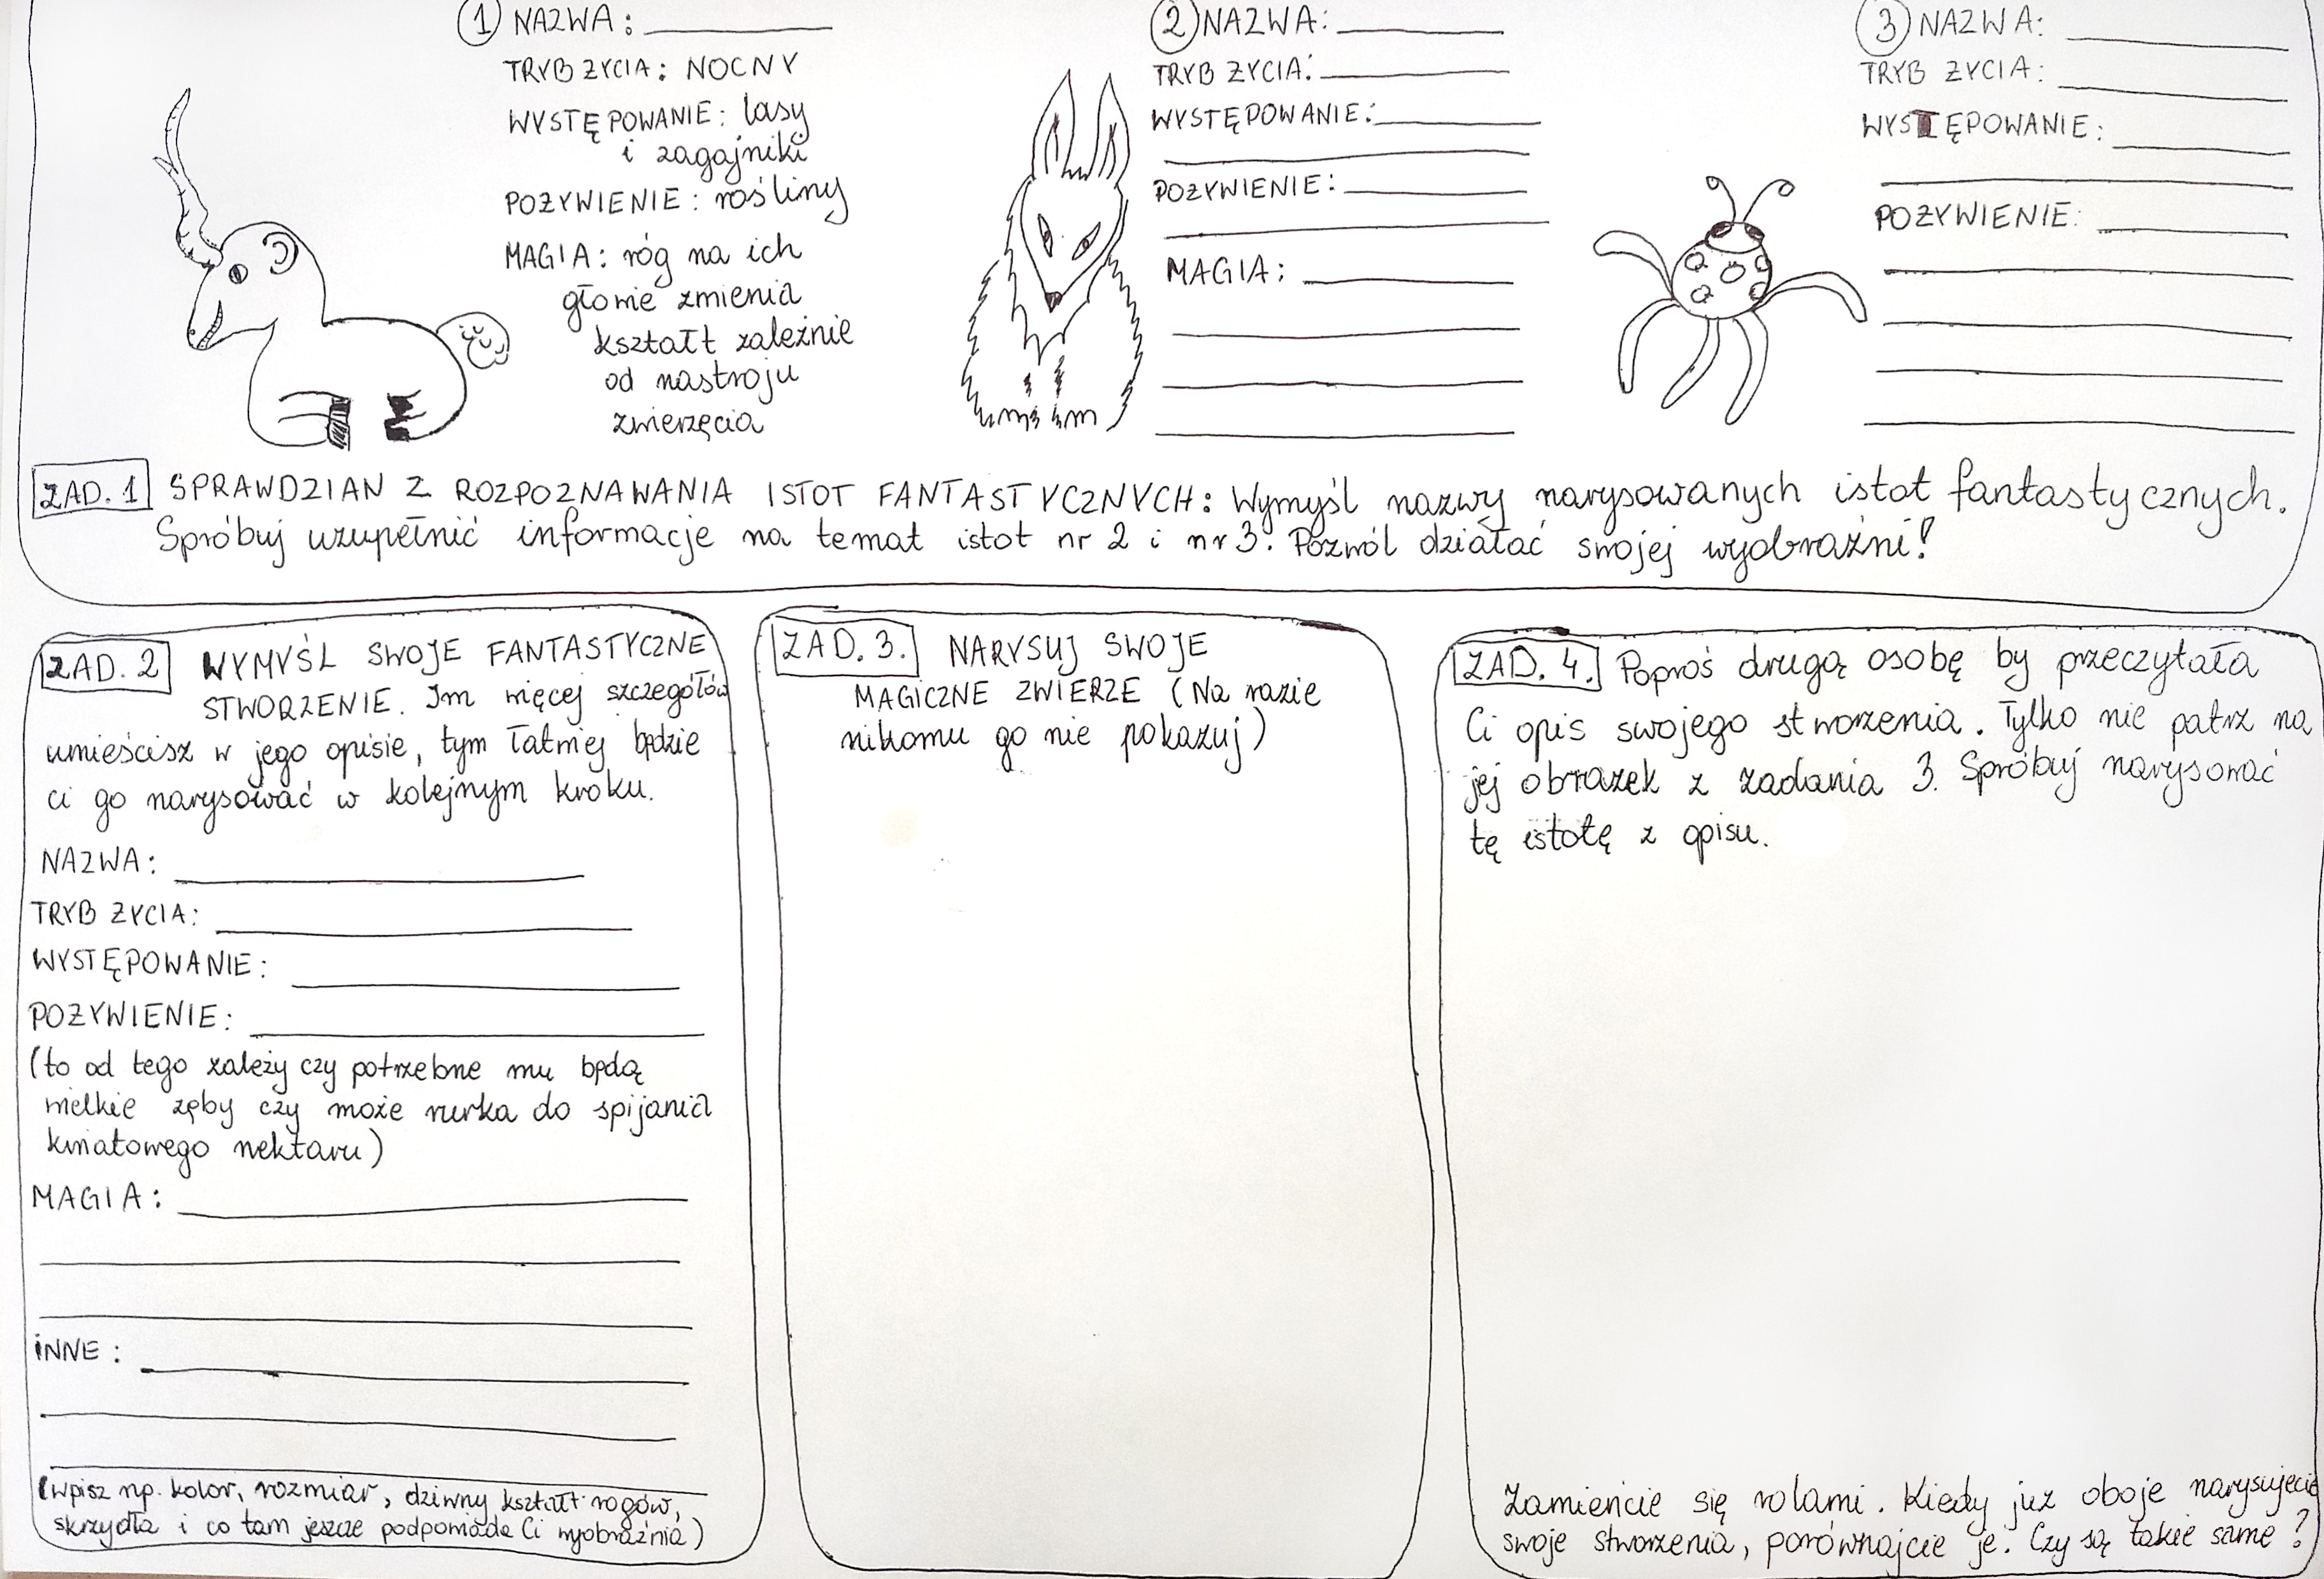 ① NAZWA: ________
TRYB ŻYCIA: NOCNY
WYSTĘPOWANIE: lasy
i zagajniki
POŻYWIENIE: rośliny
MAGIA: róg na ich
głowie zmienia
kształt zależnie
od nastroju
zwierzęcia
② NAZWA: ________
TRYB ŻYCIA: ________
WYSTĘPOWANIE: ________
POŻYWIENIE: ________
MAGIA: ________
③ NAZWA: ________
TRYB ŻYCIA: ________
WYSTĘPOWANIE: ________
POŻYWIENIE: ________
ZAD. 1 SPRAWDZIAN Z ROZPOZNAWANIA ISTOT FANTASTYCZNYCH: Wymyśl nazwy narysowanych istot fantastycznych.
Spróbuj uzupełnić informacje na temat istot nr 2 i nr 3. Pozwól działać swojej wyobraźni!
ZAD. 2 WYMYŚL SWOJE FANTASTYCZNE
STWORZENIE. Im więcej szczegółów
umieścisz w jego opisie, tym łatwiej będzie
ci go narysować w kolejnym kroku.
NAZWA: ________
TRYB ŻYCIA: ________
WYSTĘPOWANIE: ________
POŻYWIENIE: ________
(to od tego zależy czy potrzebne mu będą
wielkie zęby czy może rurka do spijania
kwiatowego nektaru)
MAGIA: ________
INNE: ________
(wpisz np. kolor, rozmiar, dziwny kształt rogów,
skrzydła i co tam jeszcze podpowiada Ci wyobraźnia)
ZAD. 3. NARYSUJ SWOJE
MAGICZNE ZWIERZE (Na razie
nikomu go nie pokazuj)
ZAD. 4. Poproś drugą osobę by przeczytała
Ci opis swojego stworzenia. Tylko nie patrz na
jej obrazek z zadania 3. Spróbuj narysować
tę istotę z opisu.
Zamieńcie się rolami. Kiedy już oboje narysujecie
swoje stworzenia, porównajcie je. Czy są takie same?